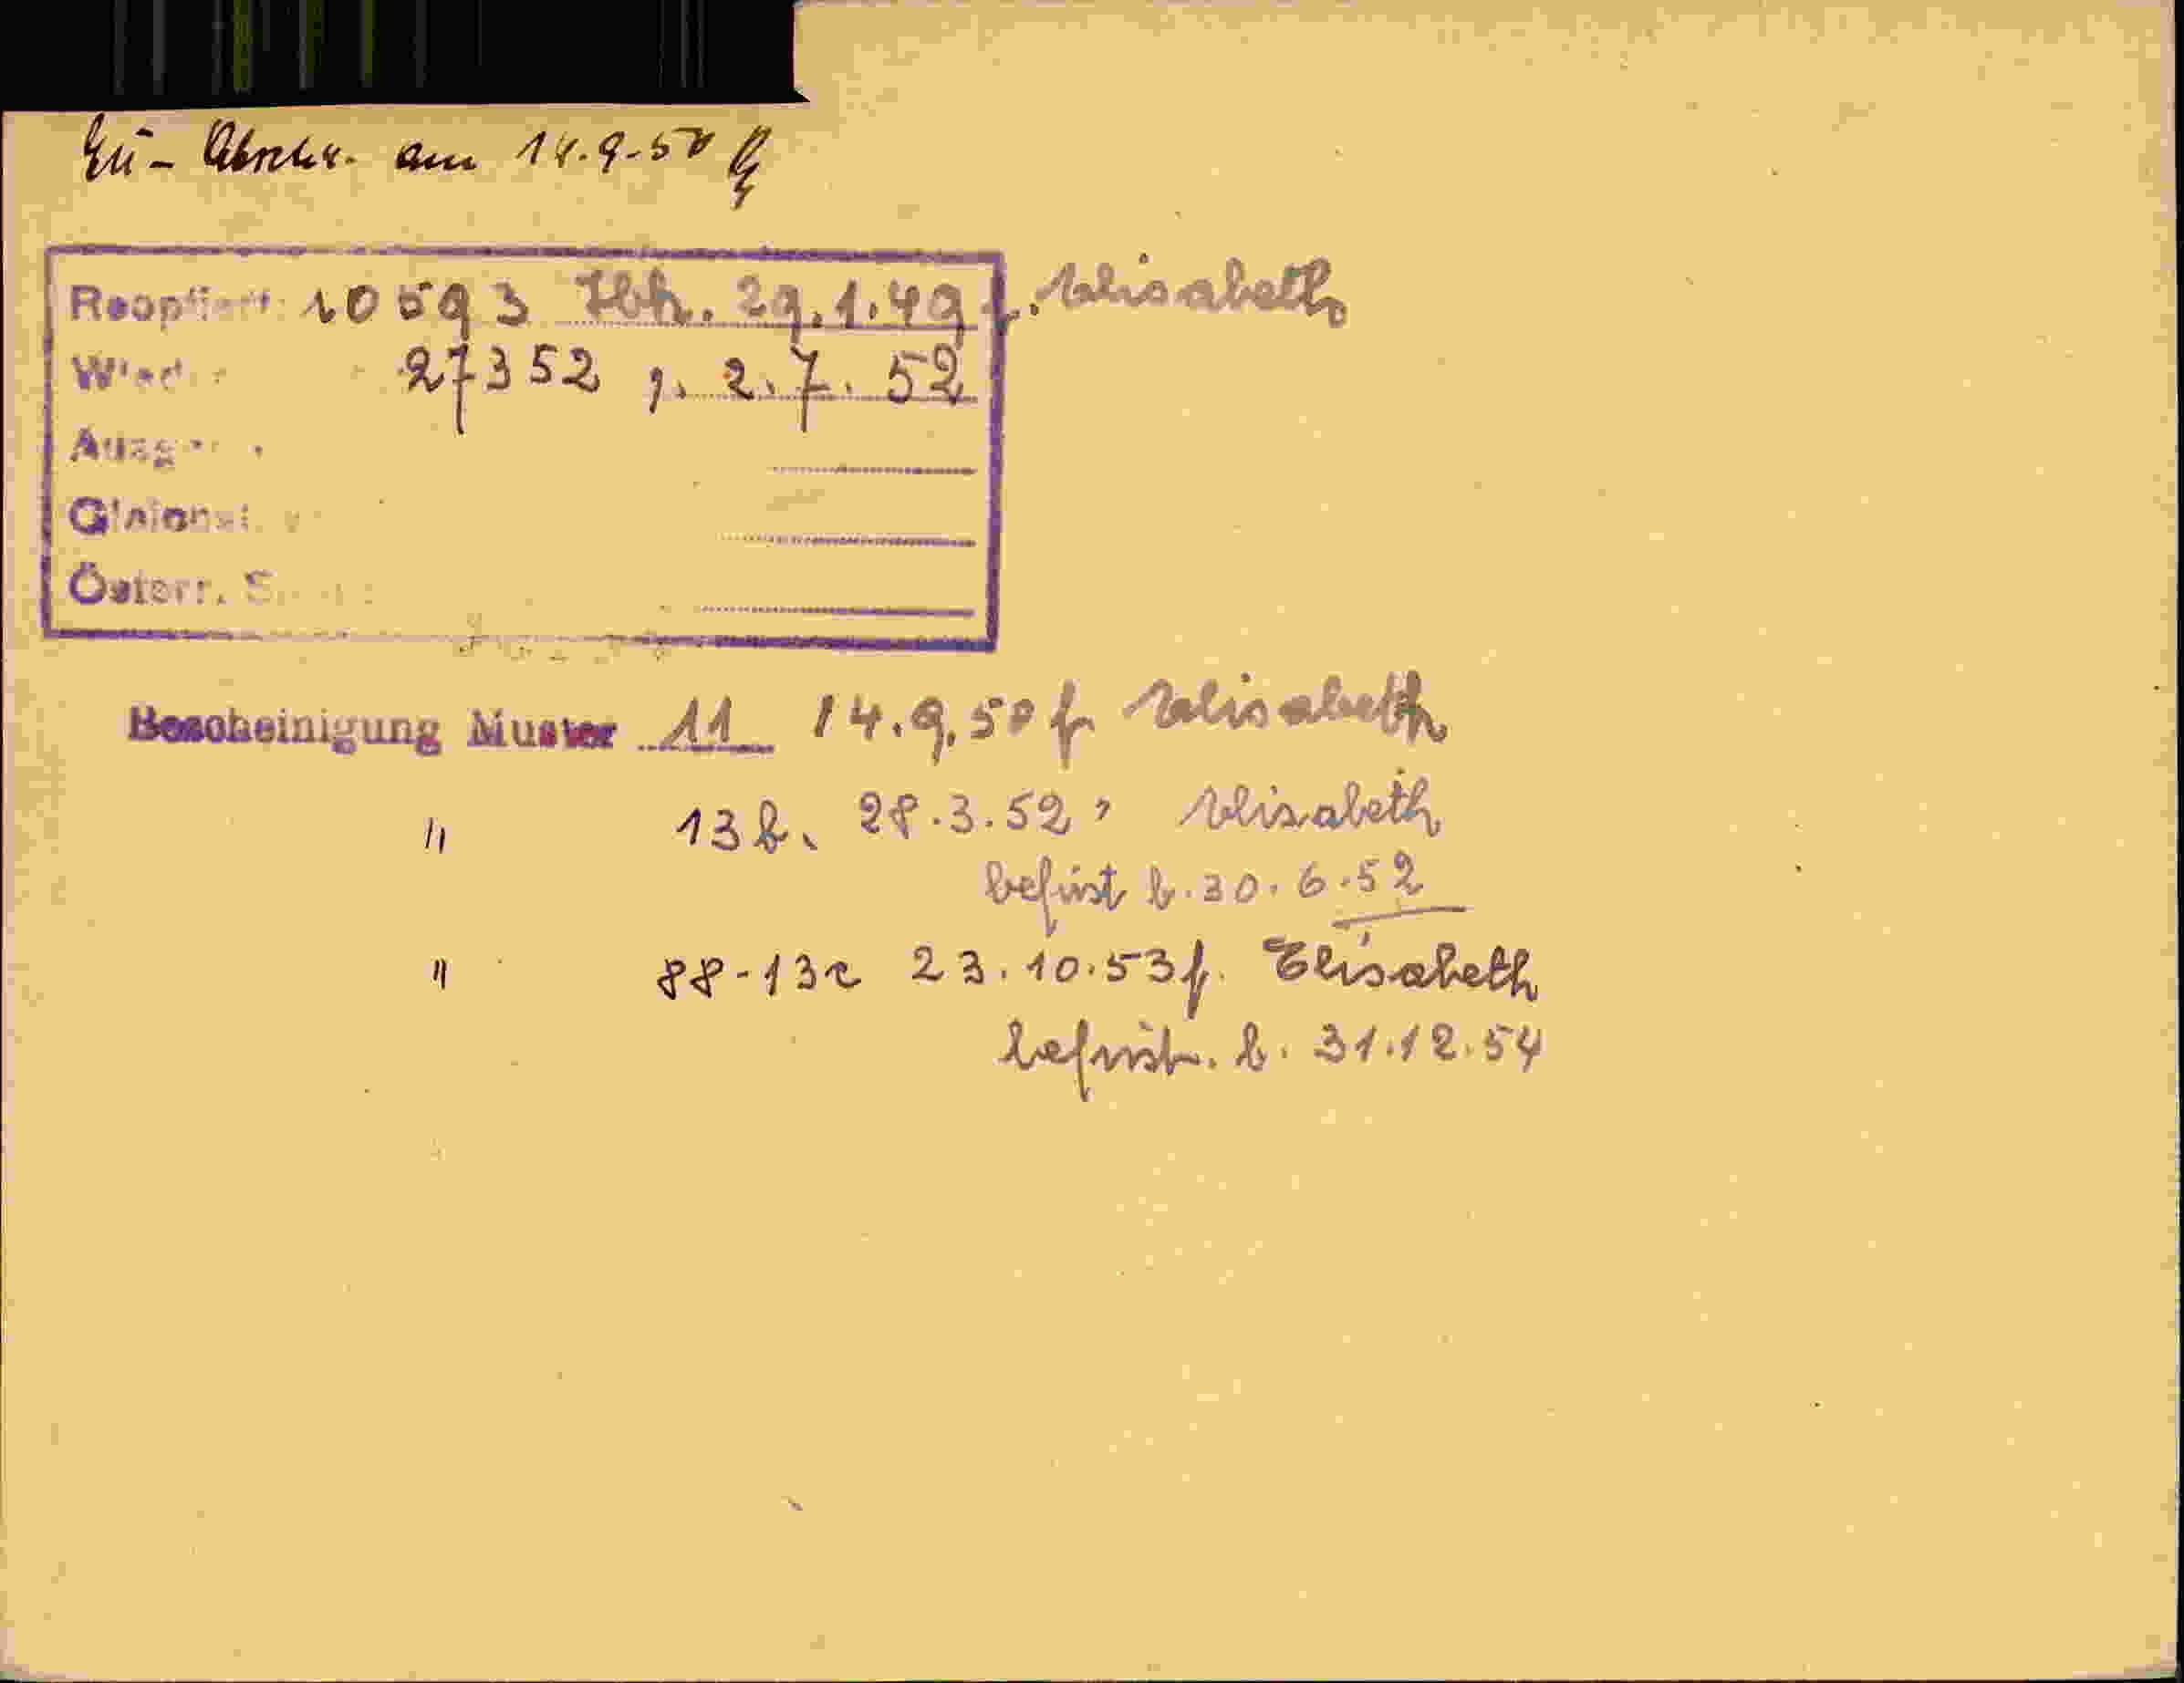 Eü- Abschr. am 14.9.50
Reoptiert: 10593 Ibk. 29.1.49 f. Elisabeth
27352 2.7.52
Österr.
Bescheinigung Muster 11 14.9.50 f Elisabeth
" 13b. 28.3.52, Elisabeth
befrist b. 30.6.52
" 88-13c 23.10.53 f. Elisabeth
befrist. b. 31.12.54